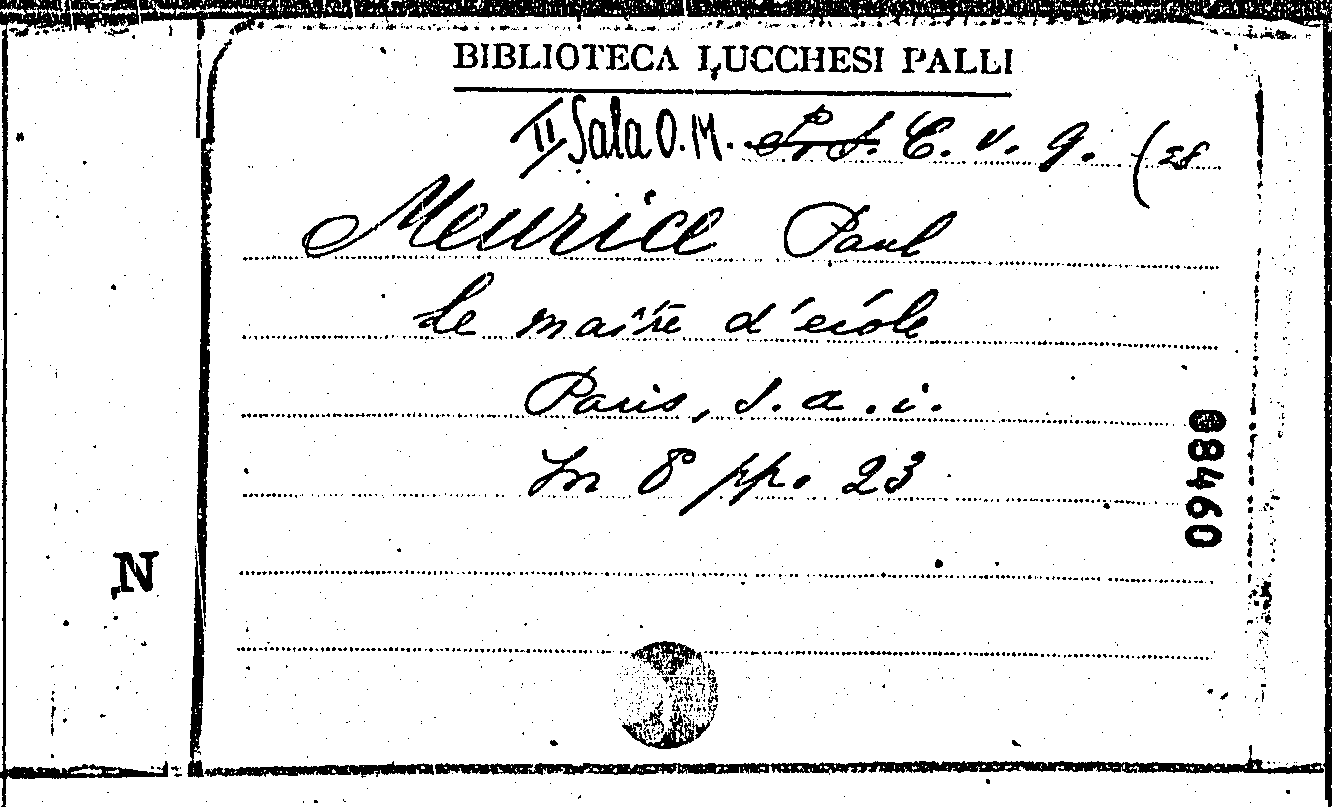 BIBLIOTECA LUCCHESI PALLI
II Sala O.M. P. S. C. v. 9. (28
Meurice Paul
Le maître d'école
Paris, s. a. i.
In 8° pp. 23
88460
N